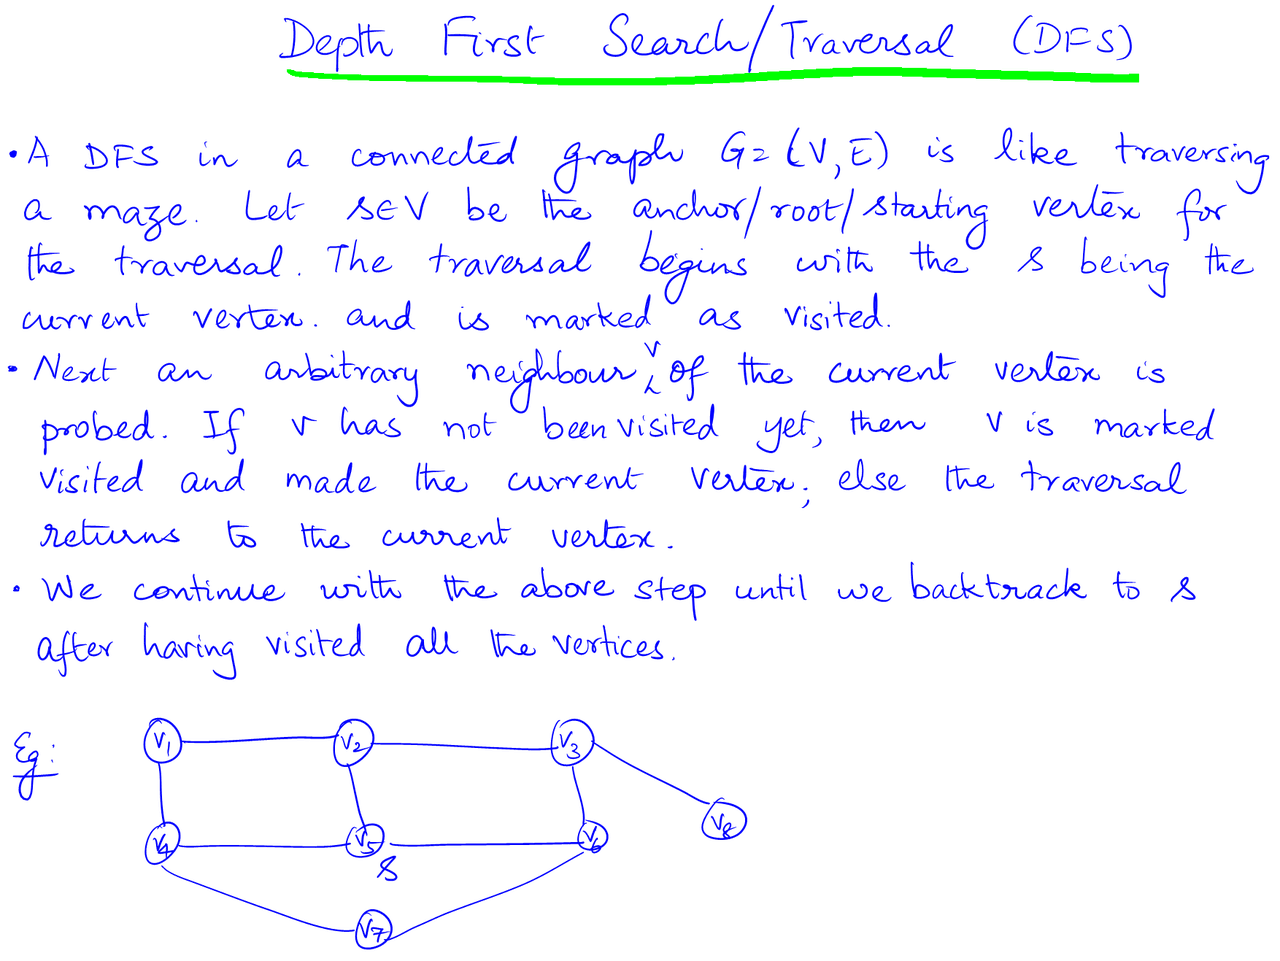 Depth First Search/Traversal (DFS)
• A DFS in a connected graph G = (V, E) is like traversing
a maze. Let s∈V be the anchor/root/starting vertex for
the traversal. The traversal begins with the s being the
current vertex. and is marked as visited.
• Next an arbitrary neighbour v of the current vertex is
probed. If v has not been visited yet, then v is marked
visited and made the current vertex; else the traversal
returns to the current vertex.
• We continue with the above step until we backtrack to s
after having visited all the vertices.
Eg:
V1 V2 V3
V8
V4 V5 V6
s
V7